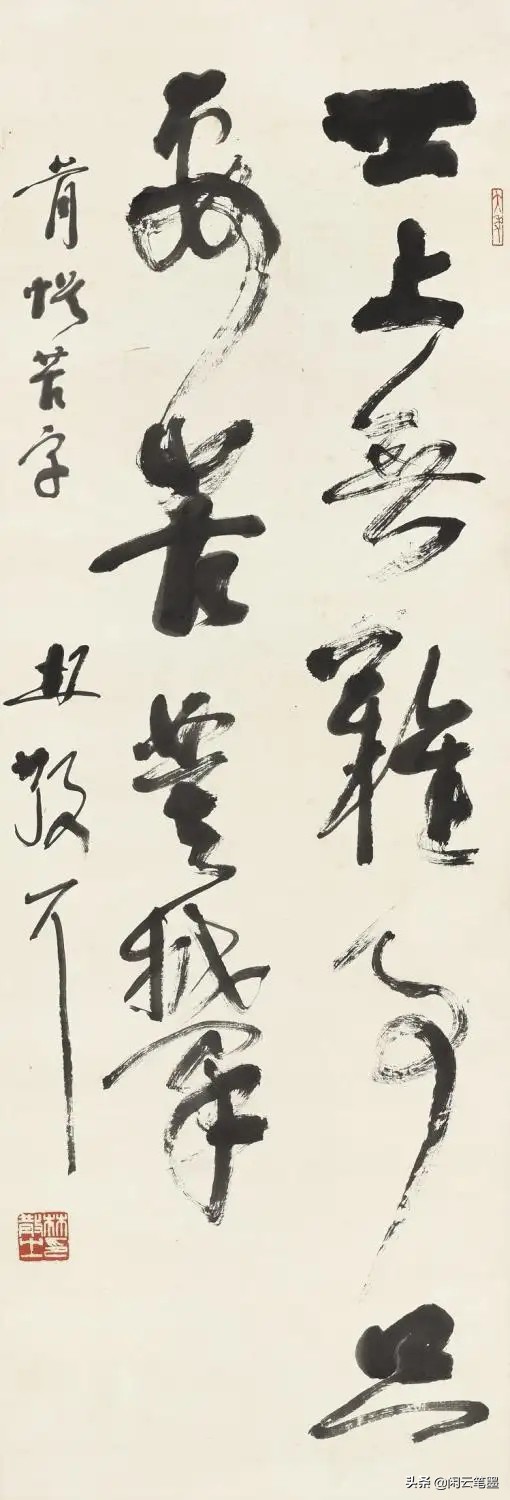 世上無難事只
要苦登攀
肯悮苦字 林散耳
林散之印
头条 @闲云笔墨